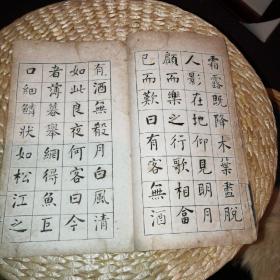 霜露既降木葉盡脫
人影在地仰見明月
顧而樂之行歌相畣
已而歎曰有客無酒
有酒無殽月白風清
如此良夜何客曰今
者薄暮舉網得魚巨
口細鱗狀如松江之